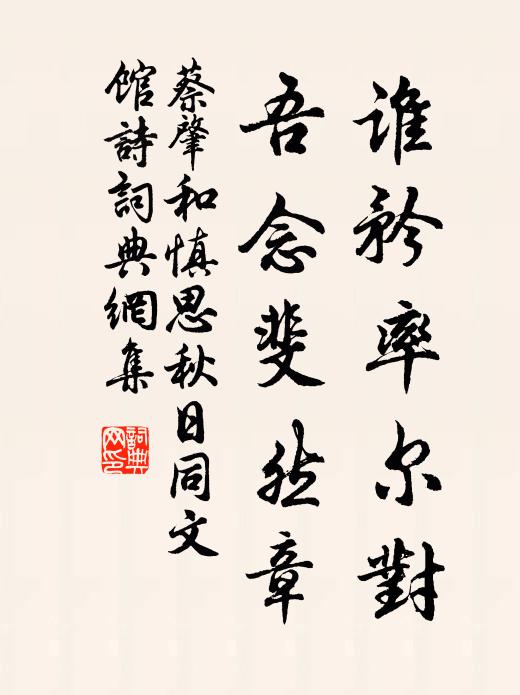 谁矜率尔對
吾念斐然章
蔡肇和慎思秋日同文
館詩詞典網集
詞典
网印